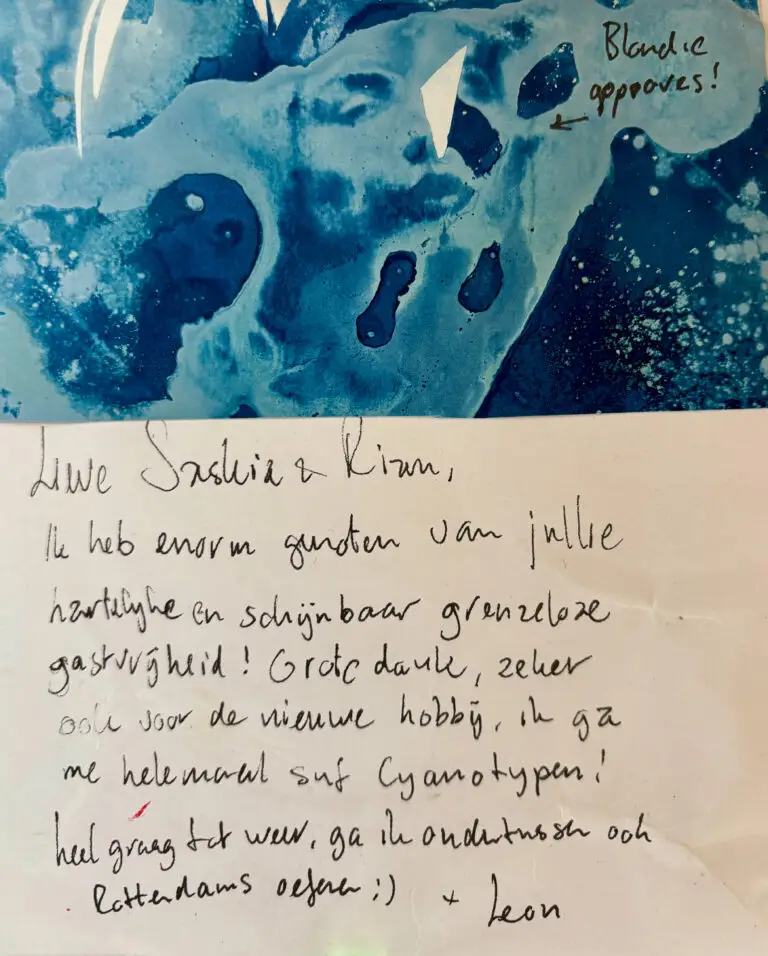 Blondie
approves!
Lieve Saskia & Rian,
Ik heb enorm genoten van jullie
hartelijke en schijnbaar grenzeloze
gastvrijheid! Grote dank, zeker
ook voor de nieuwe hobby, ik ga
me helemaal suf cyanotypen!
heel graag tot weer, ga ik ondertussen ook
Rotterdams oefenen ;) x Leon